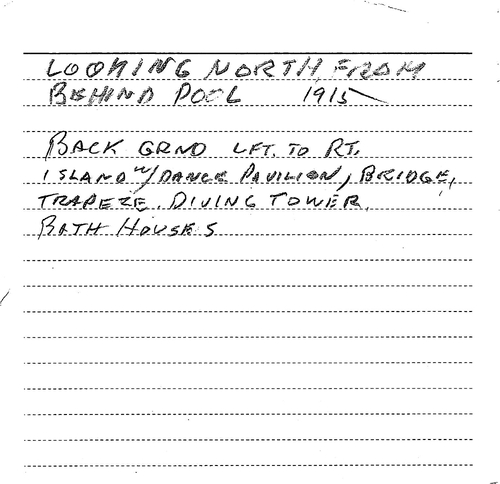 LOOKING NORTH FROM
BEHIND POOL 1915
BACK GRND LFT. TO RT.
ISLAND W/DANCE PAVILION, BRIDGE,
TRAPEZE. DIVING TOWER.
BATH HOUSES